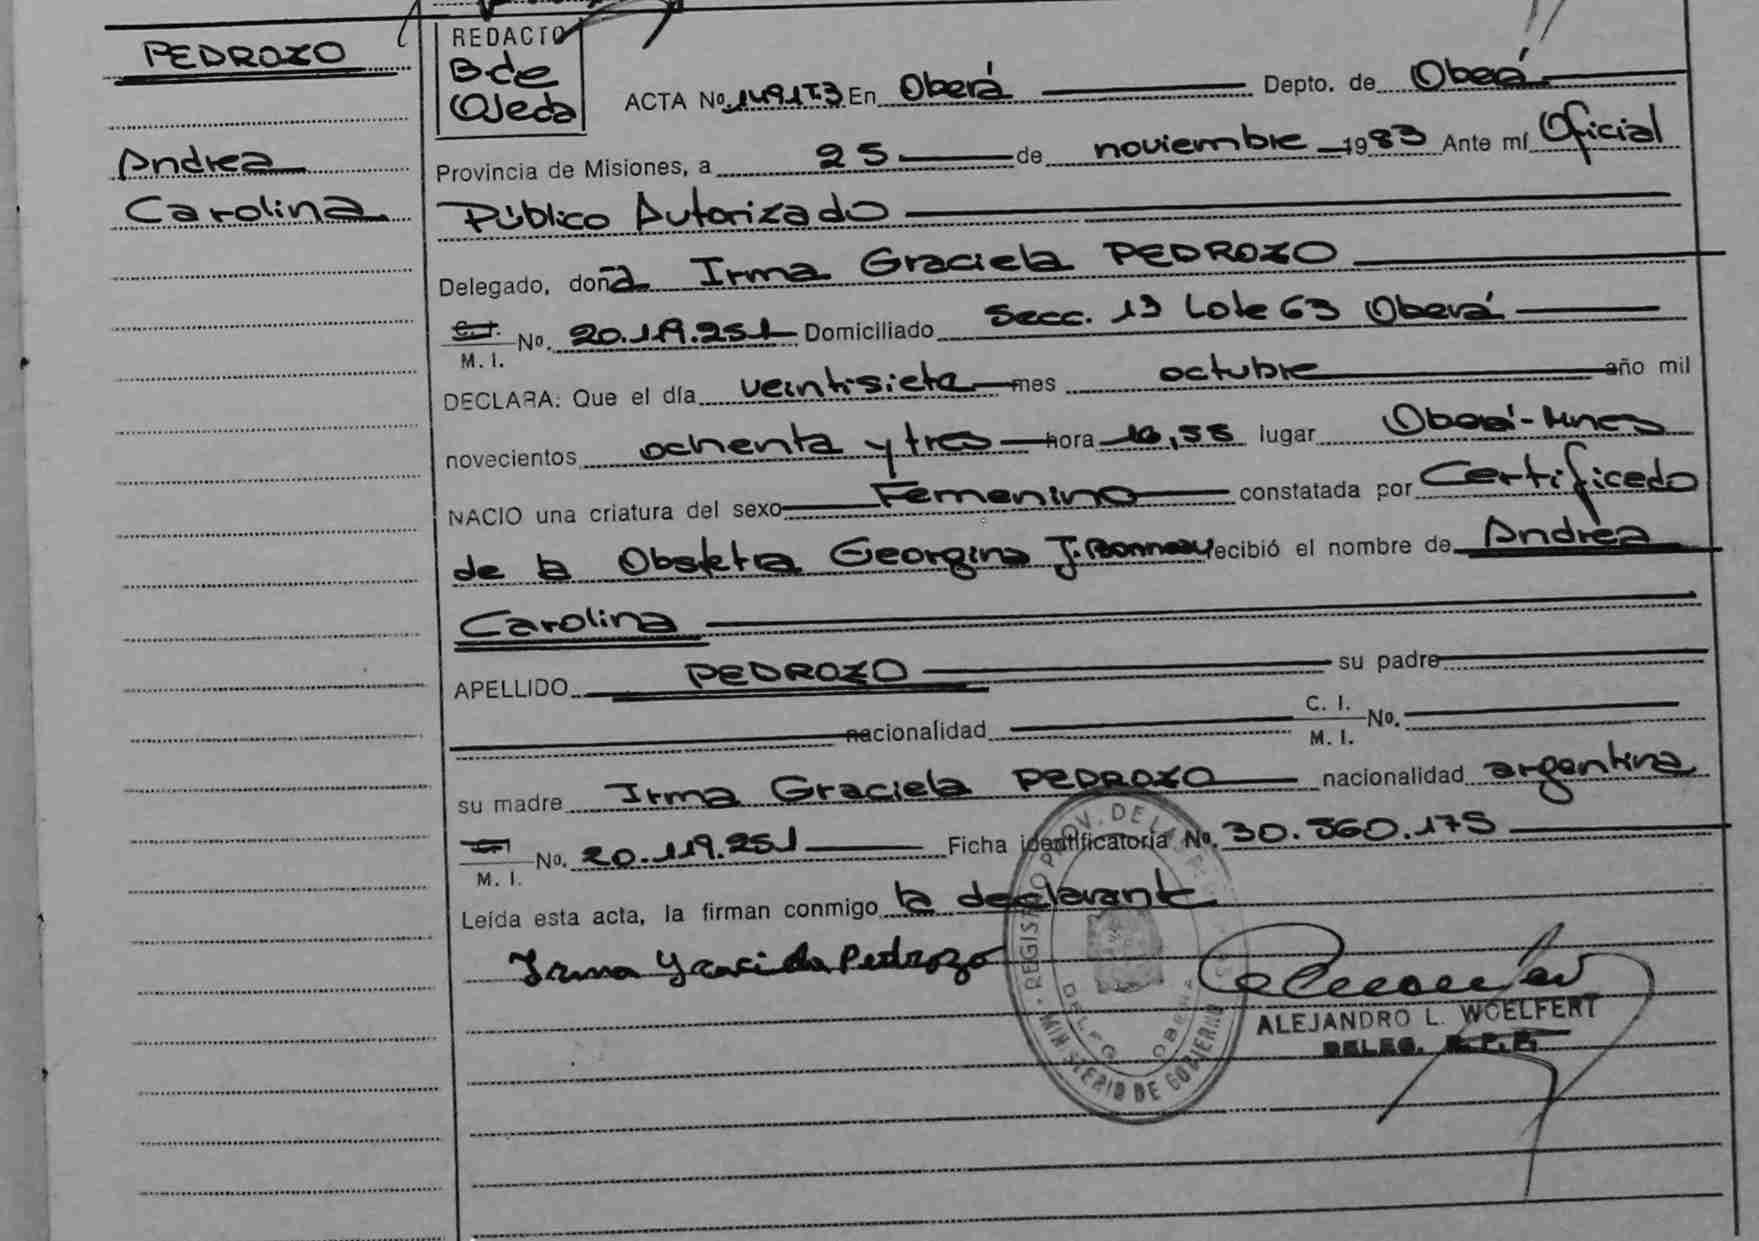 PEDROZO
Andrea
Carolina
REDACTO
B. de
Ojeda
ACTA No. 1491T.3 En Oberá Depto. de Oberá
Provincia de Misiones, a 25 de noviembre 1983 Ante mí Oficial
Público Autorizado
Delegado, doña Irma Graciela PEDROZO
M. I. No. 20.119.251 Domiciliado Secc. 13 Lote 63 Oberá
DECLARA: Que el día veintisiete mes octubre año mil
novecientos ochenta y tres hora lugar Oberá-Mnes
NACIO una criatura del sexo Femenino constatada por Certificado
de la Obstetra Georgina J. recibió el nombre de Andrea
Carolina
APELLIDO PEDROZO su padre
nacionalidad C. I. M. I. No.
su madre Irma Graciela PEDROZO nacionalidad argentina
M. I. No. 20.119.251 Ficha identificatoria No. 30.560.175
Leída esta acta, la firman conmigo la declarante
Irma Graciela Pedrozo
ALEJANDRO L. WOELFERT
DELEG. R.P.P.
REGISTRO PROV. DE LAS
DELEG. OBERA
MINISTERIO DE GOBIERNO